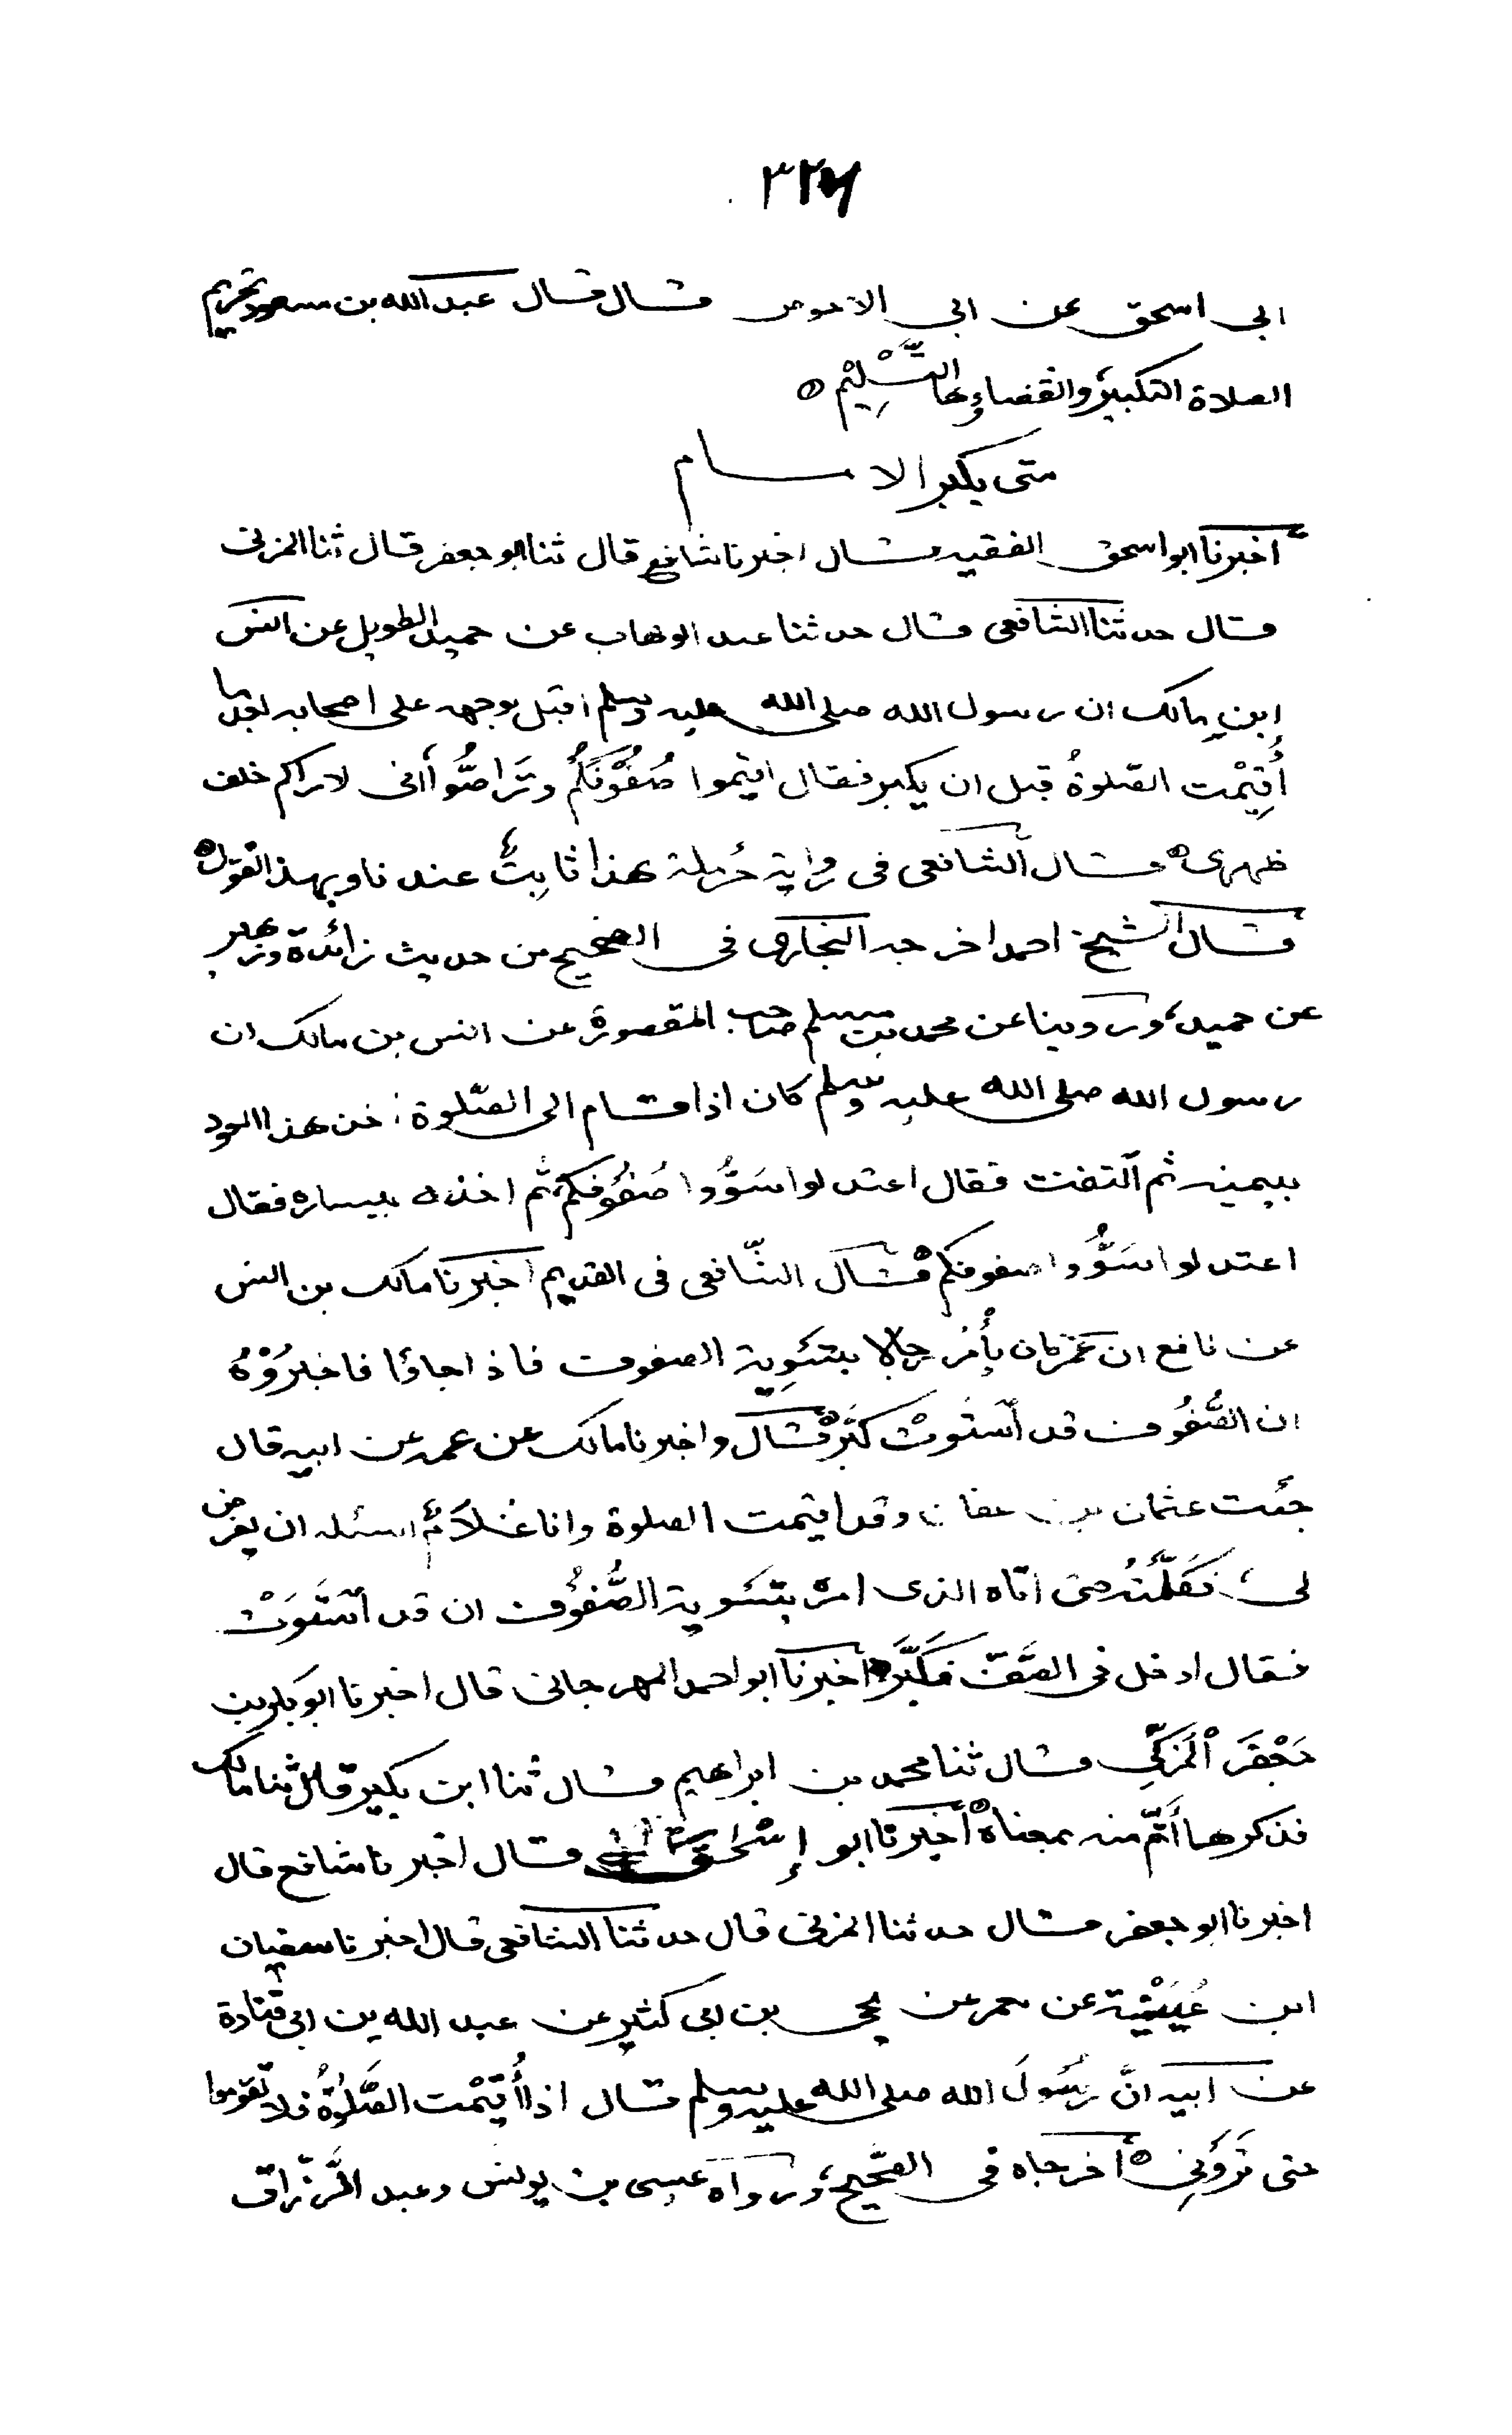 ٣٢٦
ابي اسحق عن ابي الاحوص قال قال عبد الله بن مسعود تحريم
الصلاة التكبير وانقضاؤها التَّسْلِيْم ه
متى يكبر الامام
اخبرنا ابو اسحق الفقيه قال اخبرنا شافع قال ثنا ابو جعفر قال ثنا المزنى
قال حدثنا الشافعى قال حدثنا عبد الوهاب عن حميد الطويل عن انس
ابن مالك ان رسول الله صلى الله عليه وسلم اقبل بوجهه على اصحابه بعد ما
أُقِيْمت الصّلوةُ قبل ان يكبر فقال اقيموا صُفُوْفَكُم وتَرَاصُّوا انى لاراكم خلف
ظهرى ه قال الشافعى فى رواية حَرملة هذا ثابتٌ عندنا وبهذا نقول ه
قال الشيخ احمد اخرجه البخارى فى الصحيح من حديث زائدة وزهير
عن حميد، وروينا عن محمد بن مسلم صاحب المقصورة عن انس بن مالك ان
رسول الله صلى الله عليه وسلم كان اذا قام الى الصّلوة اخذ هذا العود
بيمينه ثم التفت فقال اعتدلوا سَوُّوا صُفُوْفكم ثم اخذه بيساره فقال
اعتدلوا سَوُّوا صفوفكم ه قال الشّافعى فى القديم اخبرنا مالك بن انس
عن نافع ان عمر كان يأمُر رجالا بتسْوِية الصفوف فاذا جاؤا فاخبرُوْهُ
ان الصُّفُوف قد اسْتَوتْ كَبَّر ه قال واخبرنا مالك عن عمه عن ابيه قال
جئت عثمان بن عفان وقد اقيمت الصلوة وانا غلامٌ اسئله ان يفرض
لى، فكَلَّمْتُه حتى اتاه الذى امره بتسْوية الصُّفُوْف ان قد استَوَتْ
فقال ادخل فى الصَّفّ فكَبَّر ه اخبرنا ابو احمد المهرجانى قال اخبرنا ابو بكر بن
جَعْفَر الْمزَكِّى قال ثنا محمد بن ابراهيم قال ثنا ابن بكير قال ثنا مالك
فذكرهما أتَمّ منه بمعناه ه اخبرنا ابو إسْحٰق قال اخبرنا شافع قال
اخبرنا ابو جعفر قال حدثنا المزنى قال حدثنا الشافعى قال اخبرنا سفيان
ابن عُيَيْنَة عن معمر عن يحيى بن ابى كثير عن عبد الله بن ابى قتادة
عن ابيه انَّ رسُولَ الله صلى الله عليه وسلم قال اذا أُقِيْمت الصَّلٰوةُ فلا تقوموا
حتى تَرَوْنِى ه اخرجاه فى الصّحيح، ورواه عيسى بن يونس وعبد الرّزّاق